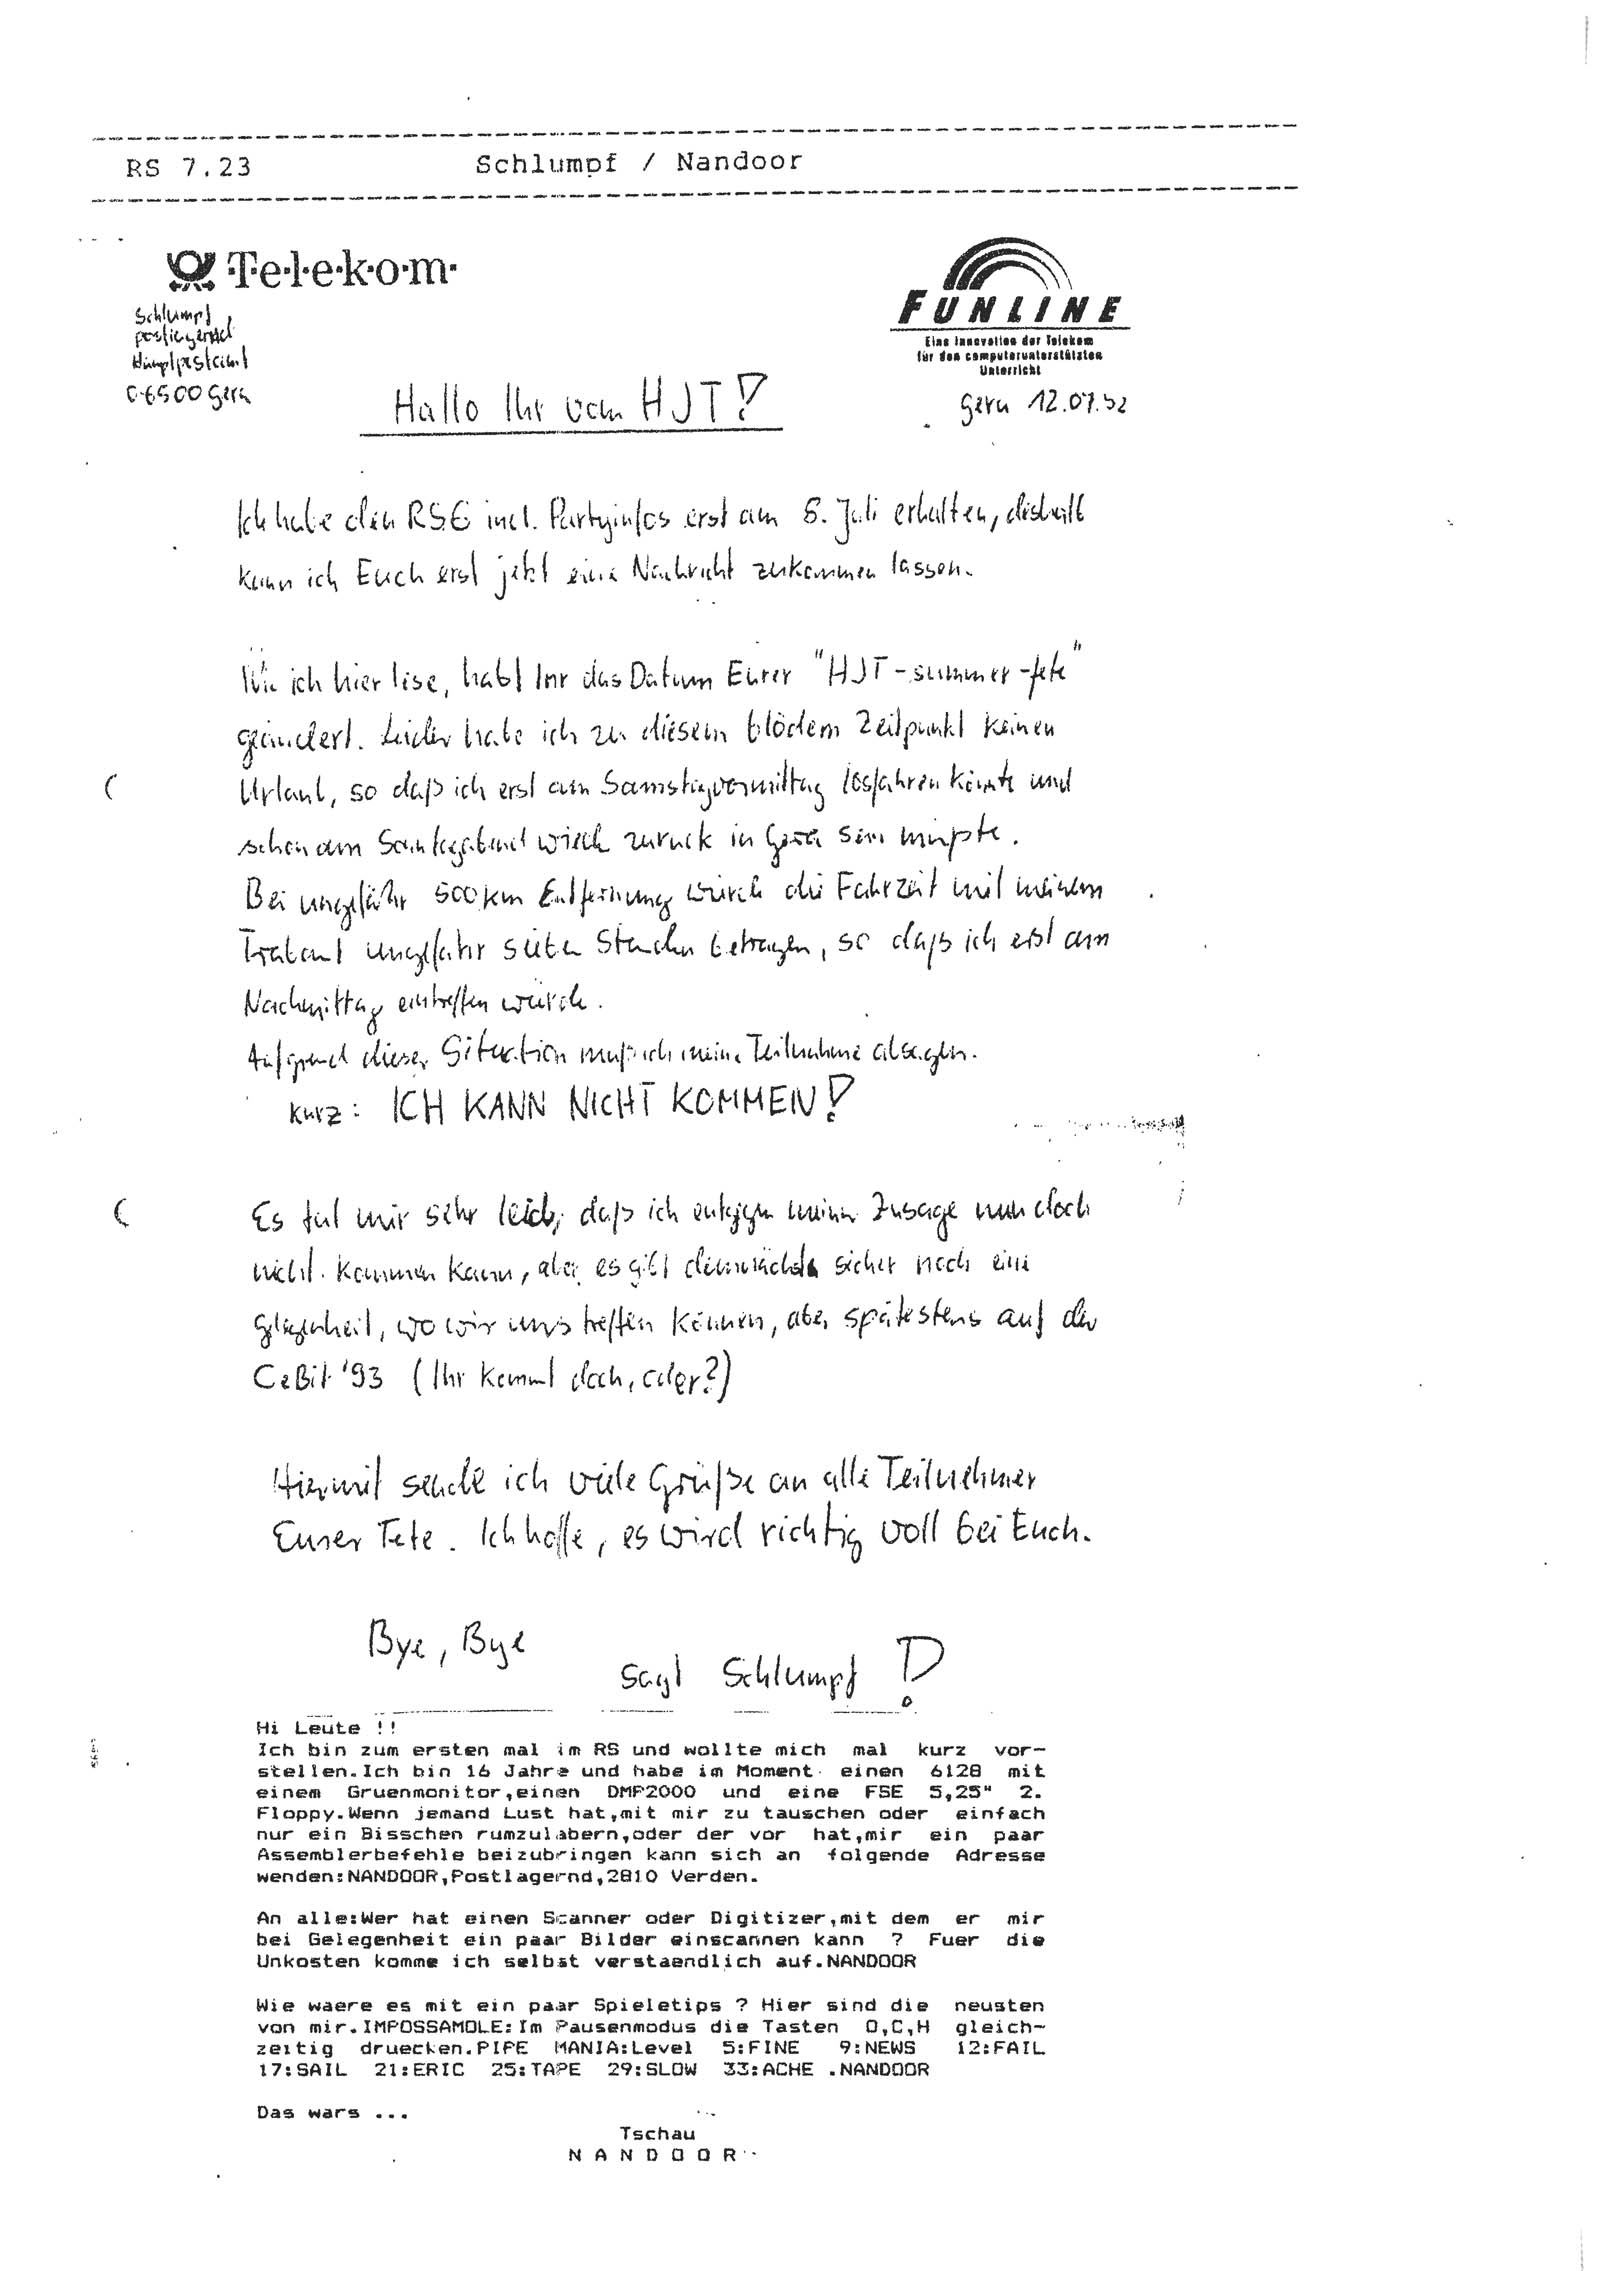 RS 7.23 Schlumpf / Nandoor
Telekom
FUNLINE
Eine Innovation der Telekom
für den computerunterstützten
Unterricht
Schlumpf
postlagernd
Hauptpostamt
O-6500 Gera
Hallo Ihr vom HJT!
Gera 12.07.92
Ich habe den RS6 incl. Partyinfos erst am 8. Juli erhalten, deshalb
kann ich Euch erst jetzt eine Nachricht zukommen lassen.
Wie ich hier lese, habt Ihr das Datum Eurer "HJT-summer-fete"
geändert. Leider habe ich zu diesem blödem Zeitpunkt keinen
Urlaub, so daß ich erst am Samstagvormittag losfahren könnte und
schon am Sonntagabend wieder zurück in Gera sein müßte.
Bei ungefähr 500 km Entfernung würde die Fahrzeit mit meinem
Trabant ungefähr sieben Stunden betragen, so daß ich erst am
Nachmittag eintreffen würde.
Aufgrund dieser Situation muß ich meine Teilnahme absagen.
kurz: ICH KANN NICHT KOMMEN!
Es tut mir sehr leid, daß ich entgegen meiner Zusage nun doch
nicht kommen kann, aber es gibt demnächst sicher noch eine
Gelegenheit, wo wir uns treffen können, aber spätestens auf der
CeBit '93 (Ihr kommt doch, oder?)
Hiermit sende ich viele Grüße an alle Teilnehmer
Eurer Fete. Ich hoffe, es wird richtig voll bei Euch.
Bye, Bye
sagt Schlumpf!
Hi Leute !!
Ich bin zum ersten mal im RS und wollte mich mal kurz vor-
stellen.Ich bin 16 Jahre und habe im Moment einen 6128 mit
einem Gruenmonitor,einen DMP2000 und eine FSE 5,25" 2.
Floppy.Wenn jemand Lust hat,mit mir zu tauschen oder einfach
nur ein Bisschen rumzulabern,oder der vor hat,mir ein paar
Assemblerbefehle beizubringen kann sich an folgende Adresse
wenden:NANDOOR,Postlagernd,2810 Verden.
An alle:Wer hat einen Scanner oder Digitizer,mit dem er mir
bei Gelegenheit ein paar Bilder einscannen kann ? Fuer die
Unkosten komme ich selbst verstaendlich auf.NANDOOR
Wie waere es mit ein paar Spieletips ? Hier sind die neusten
von mir.IMPOSSAMOLE:Im Pausenmodus die Tasten O,C,H gleich-
zeitig druecken.PIPE MANIA:Level 5:FINE 9:NEWS 12:FAIL
17:SAIL 21:ERIC 25:TAPE 29:SLOW 33:ACHE .NANDOOR
Das wars ...
Tschau
N A N D O O R